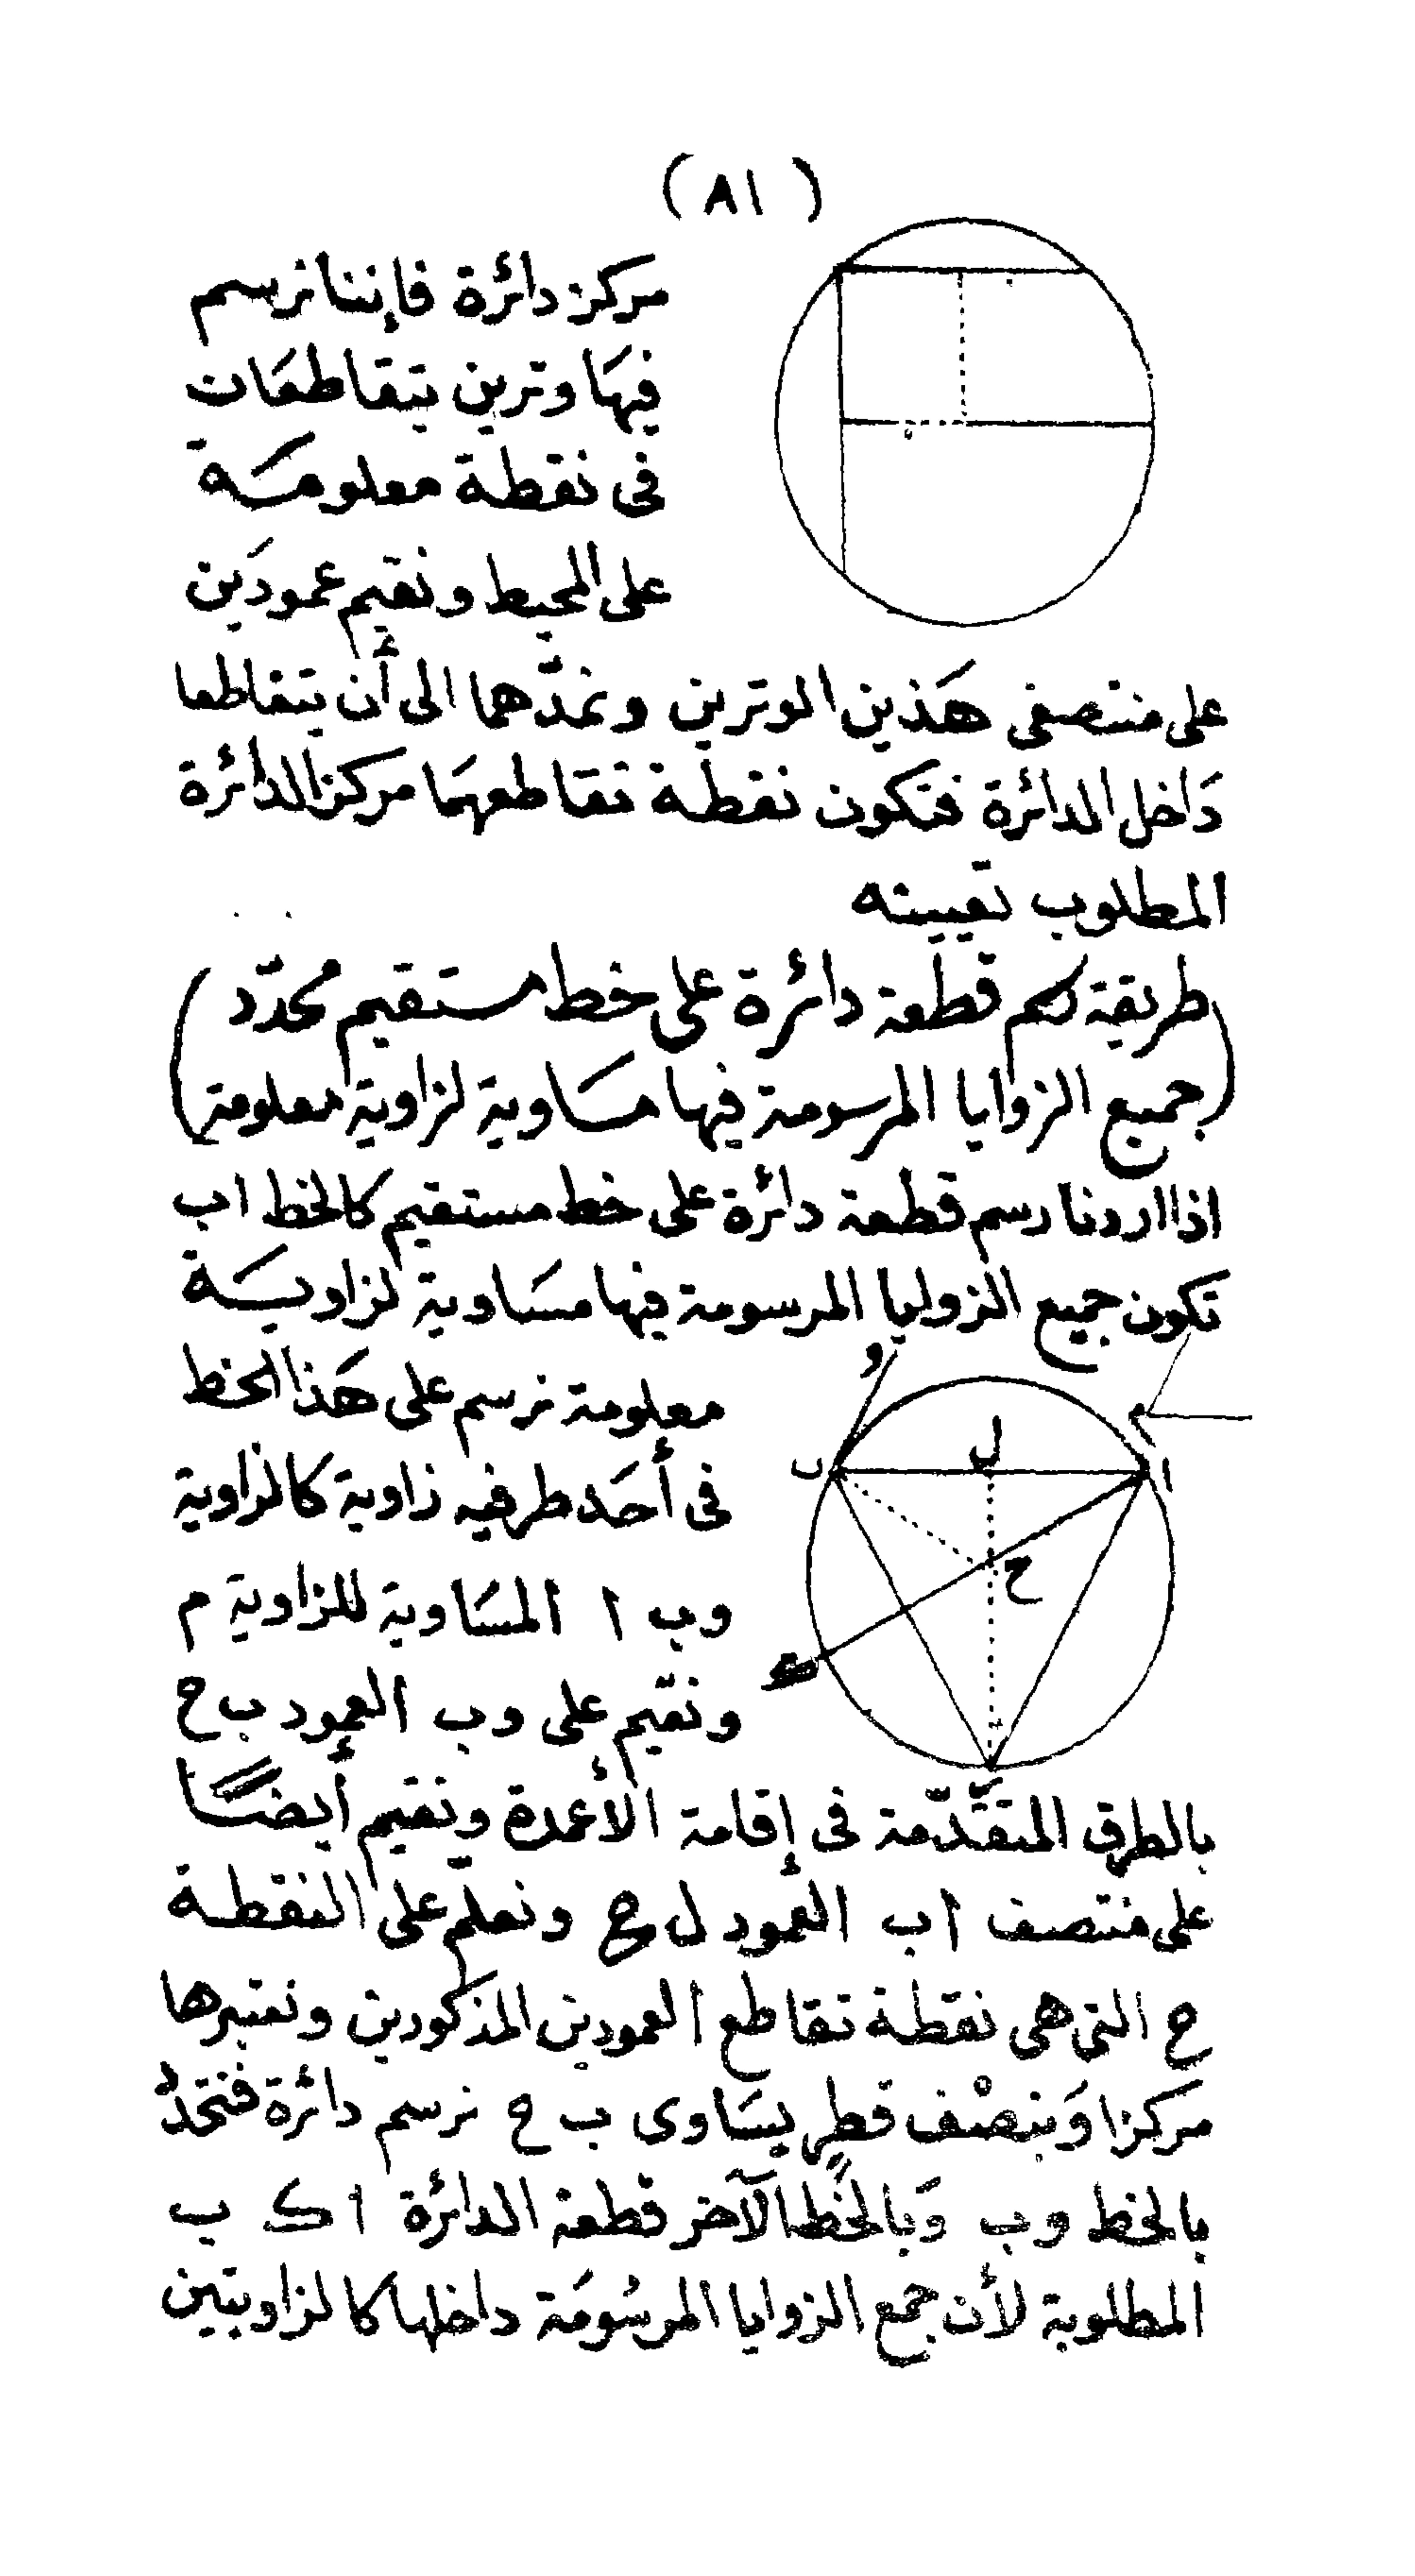 ( ٨١ )
مركز دائرة فإننا نرسم
فيها وترين يتقاطعان
فى نقطة معلومة
على المحيط ونقيم عمودين
على منتصفى هَذين الوترين ونمدّهما الى أن يتقاطعا
دَاخل الدائرة فتكون نقطة تقاطعهمَا مركز الدائرة
المطلوب تعيينه
(طريقة رسم قطعة دائرة على خط مستقيم محدّد
جميع الزوايا المرسومة فيها مسَاوية لزاوية معلومة)
اذا اردنا رسم قطعة دائرة على خط مستقيم كالخط اب
تكون جميع الزوايا المرسومة فيها مسَاوية لزاويـَة
معلومة نرسم على هَذا الخط
فى أحَد طرفيه زاوية كالزاوية
وب ا المسَاوية للزاوية م
ونقيم على وب العمود ب ح
بالطرق المتقدّمة فى إقامة الأعمدة ونقيم أيضـًا
على منتصف اب العمود ل ح ونعلّم على النقطة
ح التى هى نقطة تقاطع العمودين المذكورين ونعتبرها
مركزا وَبنصْف قطرٍ يسَاوى ب ح نرسم دائرة فتتحدُ
بالخط وب وَبالخط الآخر قطعة الدائرة ا ك ب
المطلوبة لأن جمع الزوايا المرسُومَة داخلها كالزاويتين
و
م
ا
ل
ب
ح